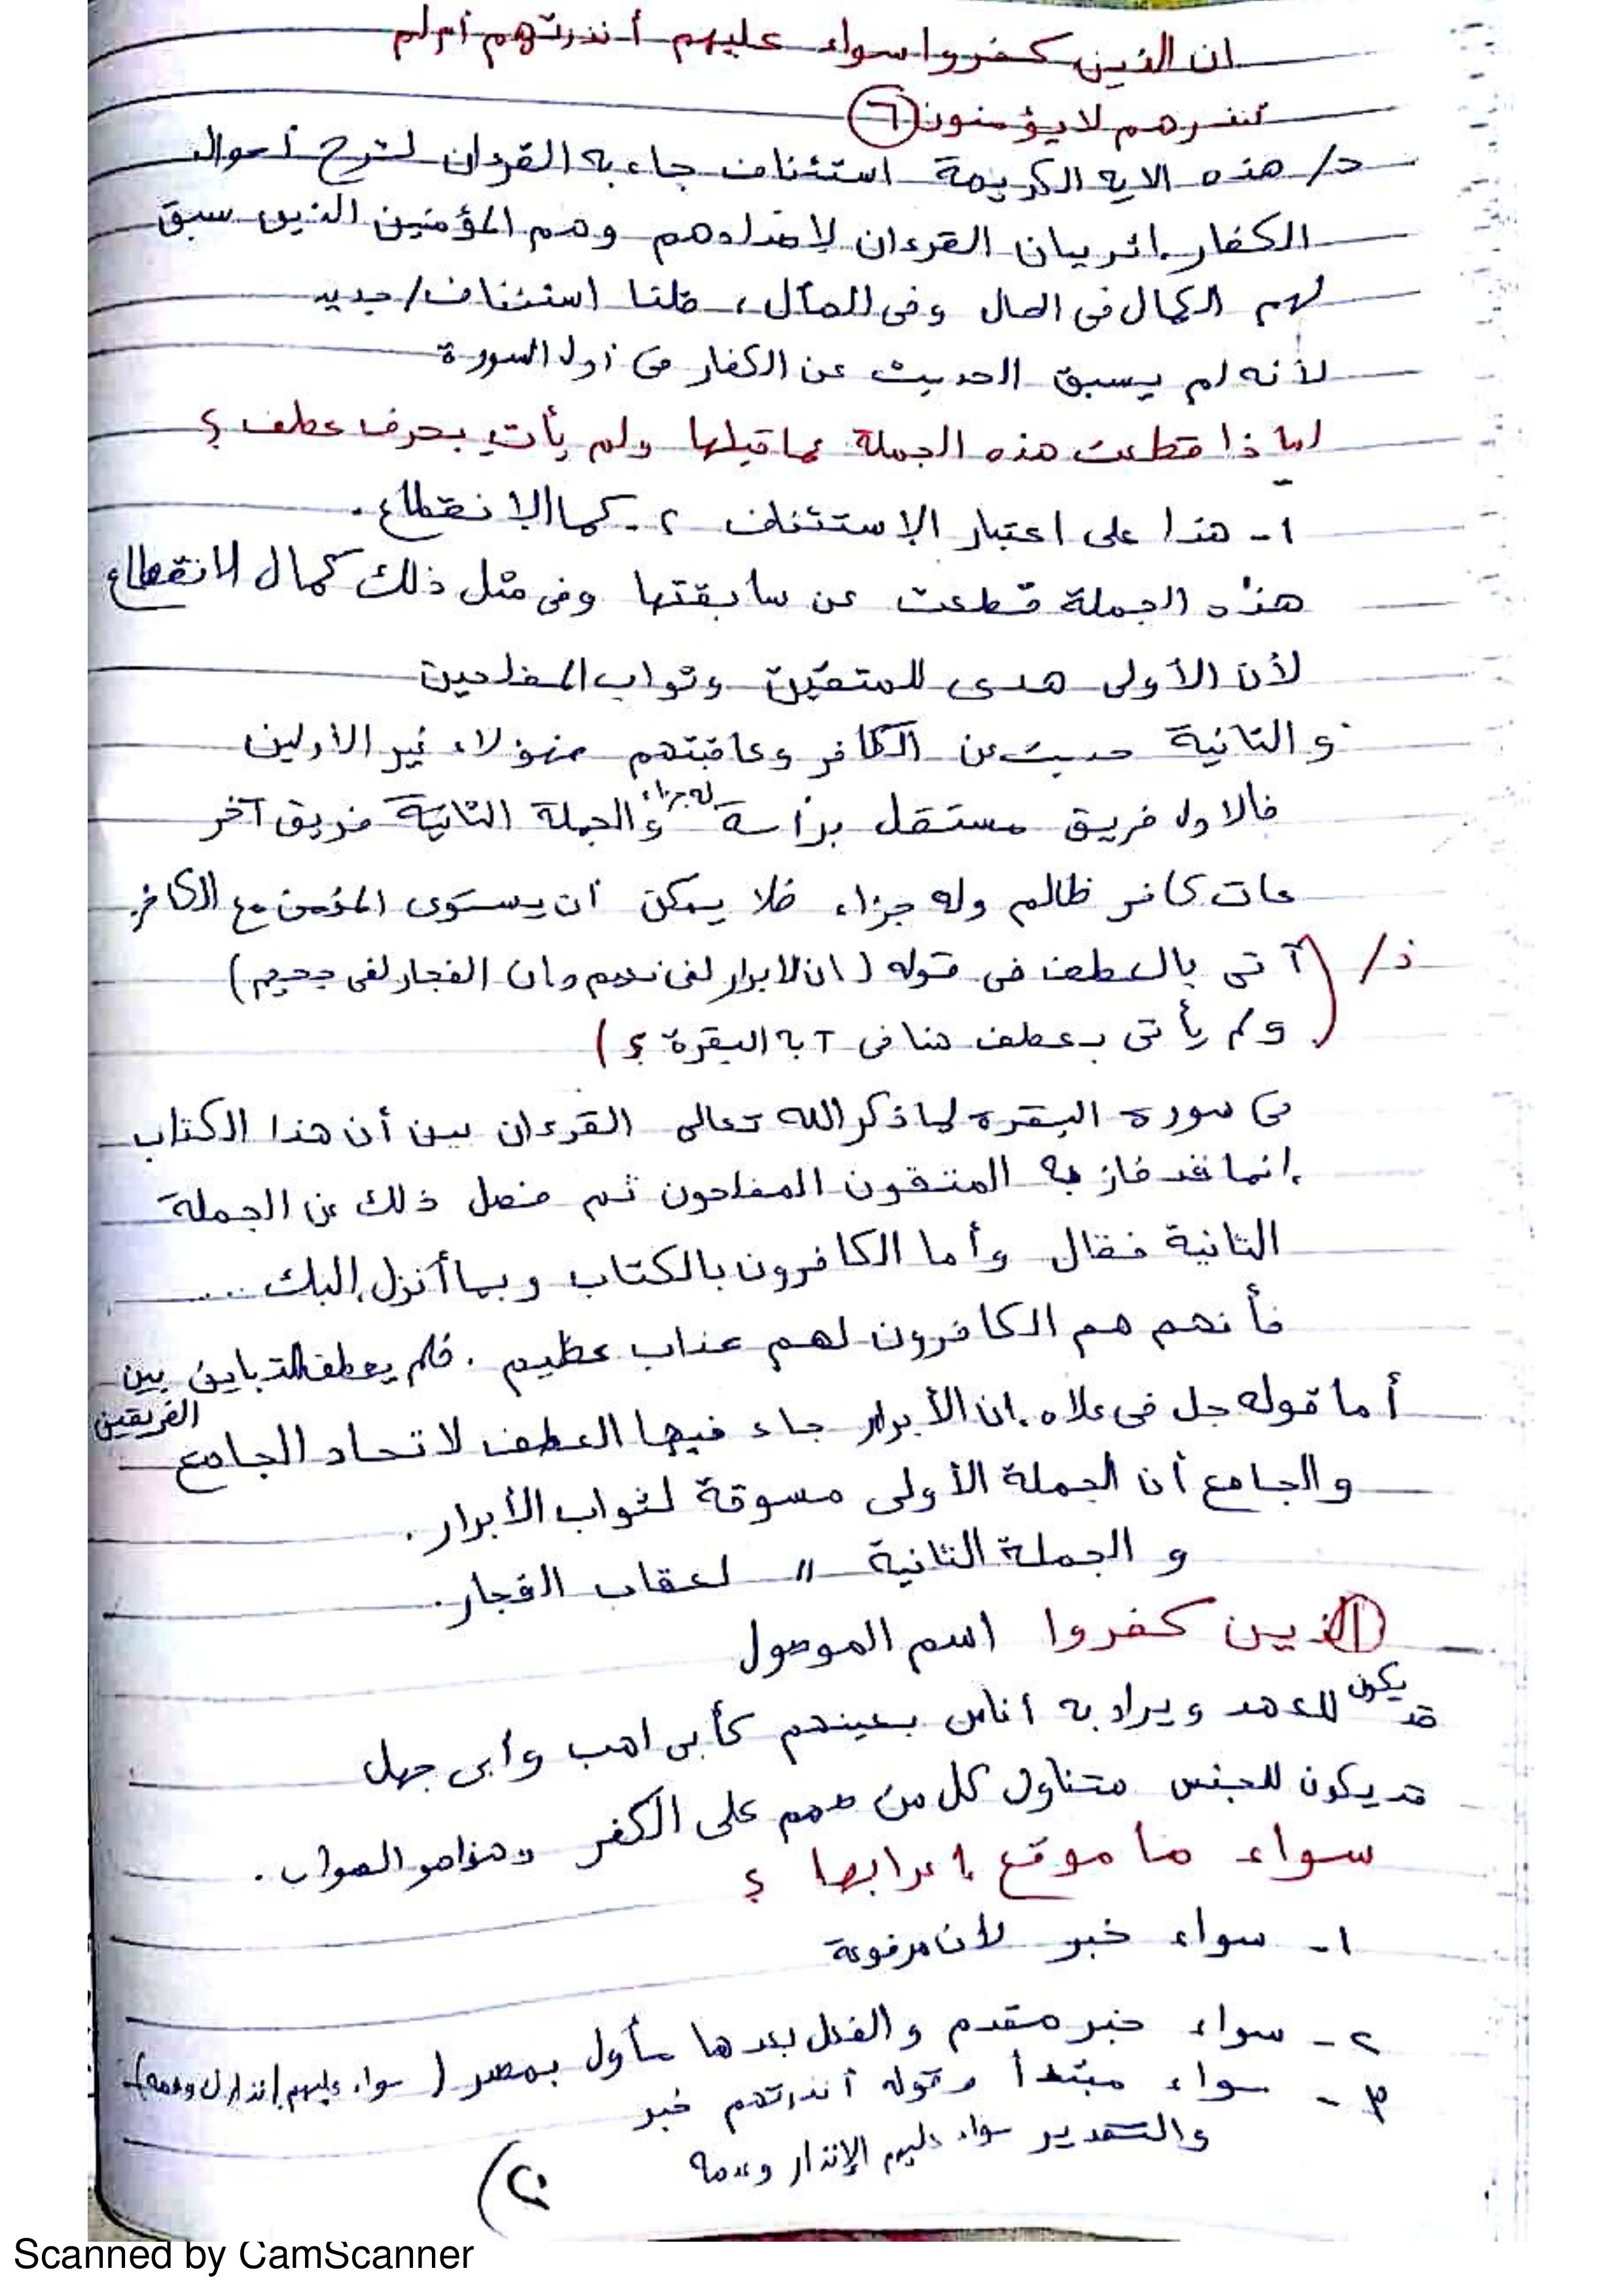 ان الذين كفروا سواء عليهم أنذرتهم أم لم
تنذرهم لا يؤمنون ٦
د/ هذه الايه الكريمة استئناف جاء به القرءان لشرح أحوال
الكفار إثر بيان القرءان لاضدادهم وهم المؤمنين الذين سبق
لهم الكمال فى الحال وفى المآل، قلنا استئناف/جديد
لأنه لم يسبق الحديث عن الكفار فى أول السورة
لماذا قطعت هذه الجملة عما قبلها ولم يأت بحرف عطف ؟
١- هذا على اعتبار الاستئناف ٢- كمال الانقطاع.
هذه الجملة قطعت عن سابقتها وفى مثل ذلك كمال الانقطاع
لأن الأولى هدى للمتقين وثواب المفلحين
والثانية حديث عن الكافر وعاقبتهم فهؤلاء غير الأولين
فالاول فريق مستقل برأسة له جزاء والجملة الثانية فريق آخر
عات كافر ظالم وله جزاء فلا يمكن أن يستوى المؤمن مع الكافر.
د/ (آتى بالعطف فى قوله (ان الابرار لفى نعيم وان الفجار لفى جحيم)
ولم يأتى بعطف هنا فى آية البقرة ؟)
فى سورة البقرة لما ذكر الله تعالى القرءان بين أن هذا الكتاب
إنما قد فاز به المتقون المفلحون ثم فصل ذلك عن الجملة
الثانية فقال وأما الكافرون بالكتاب وبما أنزل إليك ....
فأنهم هم الكافرون لهم عذاب عظيم . فلم يعطف للتباين بين
الفريقين
أما قوله جل فى علاه إن الأبرار جاء فيها العطف لاتحاد الجامع
والجامع أن الجملة الأولى مسوقة لثواب الأبرار.
و الجملة الثانية " لعقاب الفجار.
الذين كفروا اسم الموصول
قد يكون للعهد ويراد به أناس بعينهم كأبى لهب وأبى جهل
قد يكون للجنس متناول كل من صمم على الكفر وهذا هو الصواب.
سواء ما موقع إعرابها ؟
١- سواء خبر لأن مرفوعة
٢- سواء خبر مقدم والفعل بعدها مأول بمصدر (سواء عليهم إنذارك وعدمه)
٣- سواء مبتدأ وقوله أنذرتهم خبر
والتقدير سواء عليهم الإنذار وعدمه
٢٠)
Scanned by CamScanner